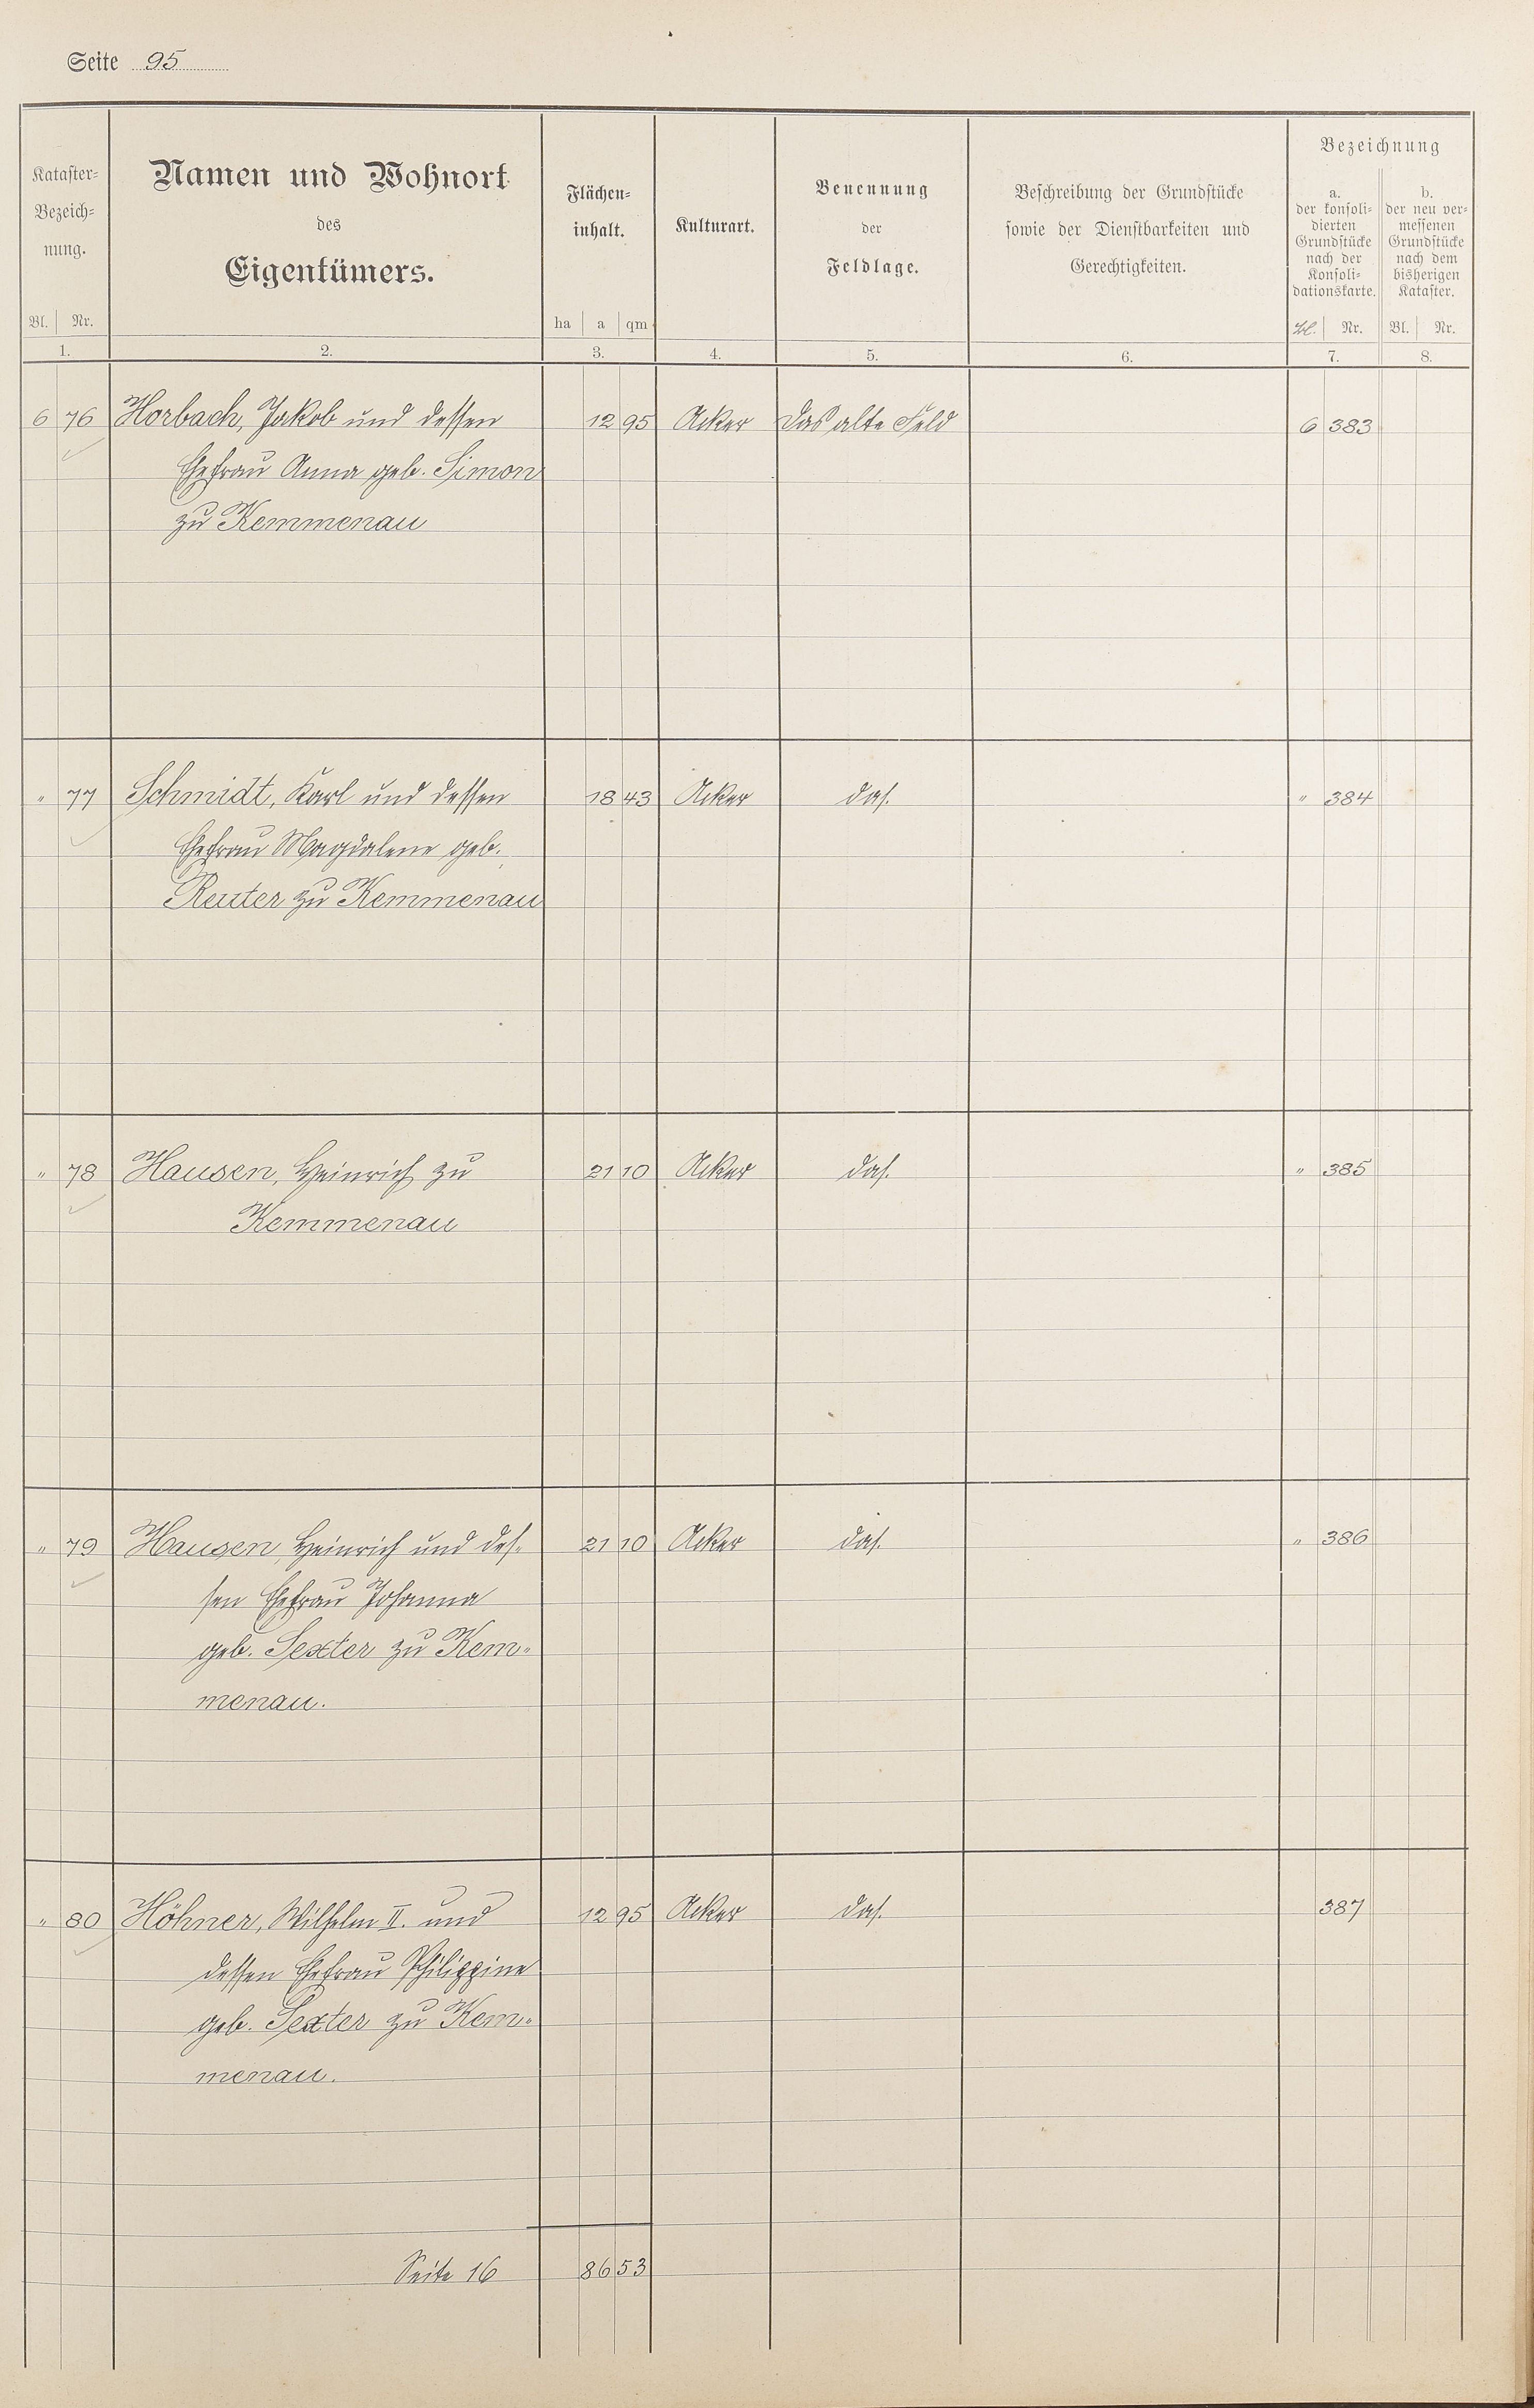 Seite 95
Kataster-
Bezeich-
nung.
Bl. Nr.
1.
Namen und Wohnort
des
Eigentümers.
2.
Flächen-
inhalt.
ha a qm
3.
Kulturart.
4.
Benennung
der
Feldlage.
5.
Beschreibung der Grundstücke
sowie der Dienstbarkeiten und
Gerechtigkeiten.
6.
Bezeichnung
a.
der konsoli-
dierten
Grundstücke
nach der
Konsoli-
dationskarte.
Bl. Nr.
7.
b.
der neu ver-
messenen
Grundstücke
nach dem
bisherigen
Kataster.
Bl. Nr.
8.
6 76 Horbach, Jakob und dessen 12 95 Acker Das alte Feld 6 383
Ehefrau Anna geb. Simon
zu Kemmenau
" 77 Schmidt, Karl und dessen 18 43 Acker das. " 384
Ehefrau Magdalene geb.
Reuter zu Kemmenau
" 78 Hausen, Heinrich zu 21 10 Acker das. " 385
Kemmenau
" 79 Hausen, Heinrich und des- 21 10 Acker das. " 386
sen Ehefrau Johanna
geb. Sexter zu Kem-
menau.
" 80 Höhner, Wilhelm II. und 12 95 Acker das. 387
dessen Ehefrau Philippine
geb. Sexter zu Kem-
menau.
Seite 16 86 53